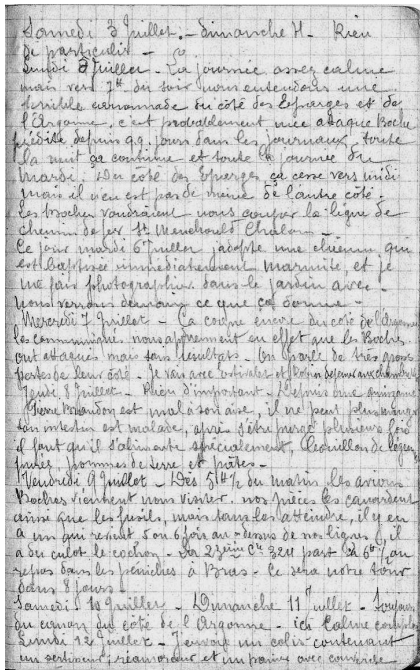 Samedi 3 Juillet. - dimanche 4. Rien
de particulier -
Lundi 5 Juillet - La journée assez calme
mais vers 7h du soir nous entendons une
terrible canonnade du côté des Eparges et de
l'Argonne, c'est probablement une attaque Boche
prédite depuis qq. jours dans les journaux, toute
la nuit ça continue et toute la journée du
mardi. Du côté des Eparges ça cesse vers midi
mais il n'en est pas de même de l'autre côté.
Les boches voudraient nous couper la ligne de
chemin de fer Ste Menehould Chalons -
Ce jour mardi 6 Juillet j'adopte une chienne qui
est baptisée immédiatement marmite, et je
me fais photographier dans le jardin avec -
nous verrons demain ce que ça donne -
Mercredi 7 Juillet - Ça cogne encore du côté de l'Argonne
les communiqués nous apprennent en effet que les Boches
ont attaqués mais sans résultats. On parle de très grosses
pertes de leur côté. Je vais avec et
Jeudi 8 Juillet - Rien d'important - Depuis une quinzaine
Pierre est mal à son aise, il ne peut plus manger
son intestin est malade, après s'être purgé plusieurs fois
il faut qu'il s'alimente spécialement, bouillon de légumes
purées, pommes de terre et pâtes -
Vendredi 9 Juillet - Dès 5h du matin les avions
Boches viennent nous visiter. nos pièces les canardent
ainsi que les fusils, mais sans les atteindre, il y en
a un qui revient 5 ou 6 fois au-dessus de nos lignes, il
a du culot le cochon - La 23eme Cie 324 part à 6h au
repos dans les péniches à Bras - Ce sera notre tour
dans 8 jours -
Samedi 10 Juillet - Dimanche 11 Juillet - Toujours
du canon du côté de l'Argonne - ici calme complet
Lundi 12 Juillet - J'envoie un colis contenant
un sertisseur, réamorceur et un panier avec couvercle